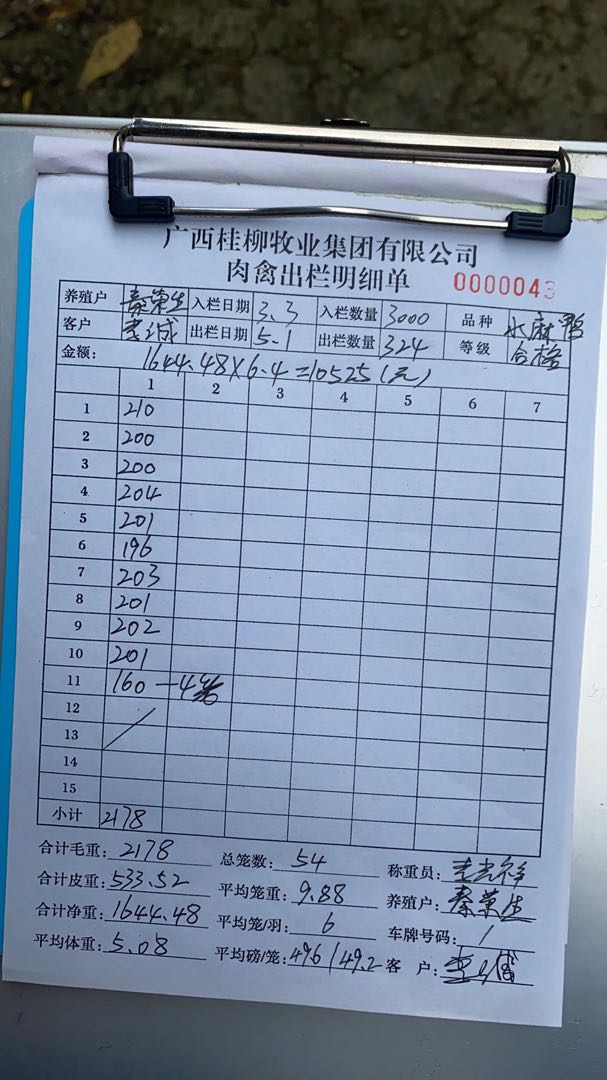 广西桂柳牧业集团有限公司
肉禽出栏明细单 0000043
养殖户 秦荣生 入栏日期 3.3 入栏数量 3000 品种 水麻鸭
客户 出栏日期 5.1 出栏数量 324 等级 合格
金额: 1644.48×6.4=10525(元)
1 2 3 4 5 6 7
1 210
2 200
3 200
4 204
5 201
6 196
7 203
8 201
9 202
10 201
11 160 —4笼
12
13
14
15
小计 2178
合计毛重: 2178 总笼数: 54 称重员:
合计皮重: 533.52 平均笼重: 9.88 养殖户: 秦荣生
合计净重: 1644.48 平均笼/羽: 6 车牌号码: /
平均体重: 5.08 平均磅/笼: 49.6/49.2 客 户: